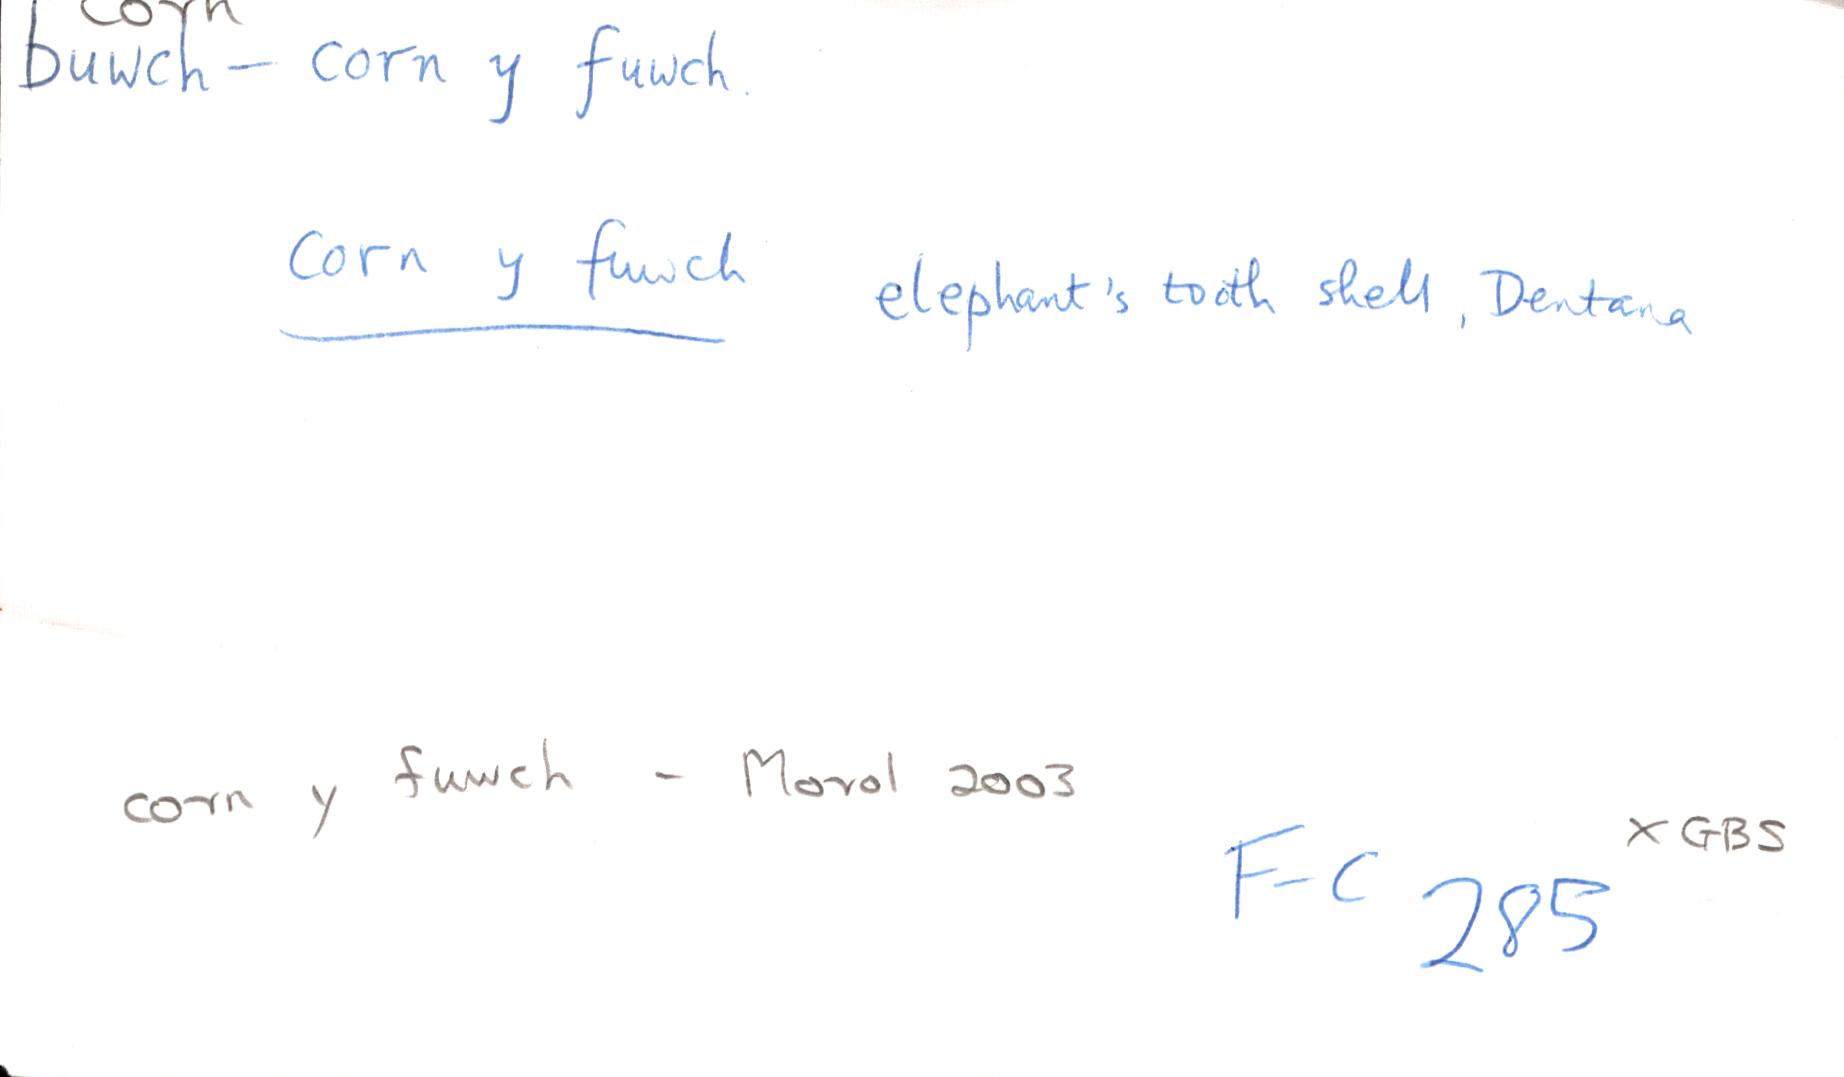 corn
buwch – corn y fuwch.
corn y fuwch elephant's tooth shell, Dentana
corn y fuwch - Morol 2003
x GBS
F-C 285